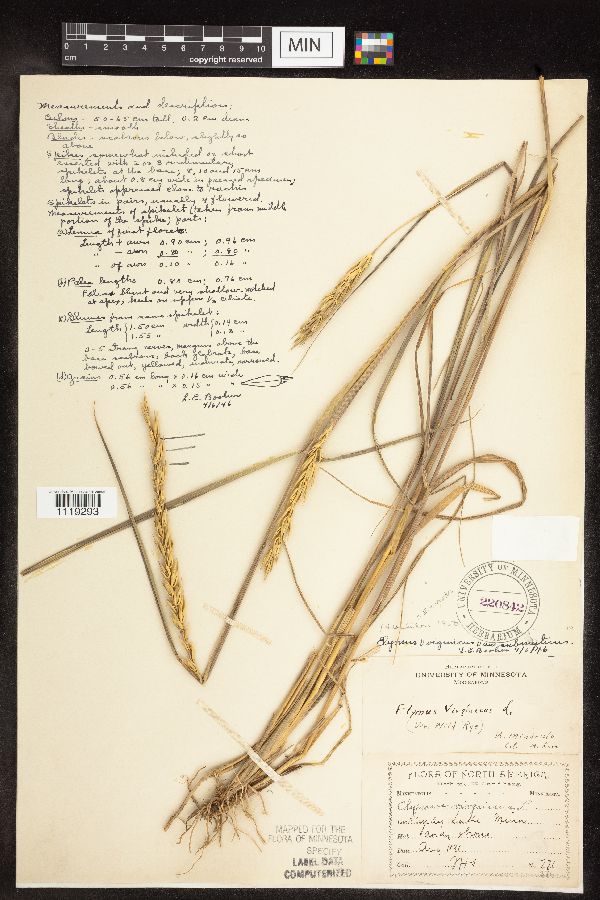 0 1 2 3 4 5 6 7 8 9 10
cm
copyright reserved
MIN
Measurements and description:
Culms - 50-65 cm tall, 0.2 cm diam
Sheaths - smooth
Blades - scabrous below, slightly so
above
Spikes somewhat included or short
exserted with 2 or 3 rudimentary
spikelets at the base; 8, 10 and 15 cm
long, about 0.8 cm wide in pressed specimen;
spikelets appressed close to rachis
Spikelets in pairs, usually 4 flowered.
Measurements of spikelet (taken from middle
portion of the spike) parts:
(a) Lemma of first floret:
Length + awn 0.90 cm; 0.96 cm
" - awn 0.80 " ; 0.80 "
" of awn 0.10 " 0.16 "
(b) Palea lengths 0.80 cm; 0.76 cm
Palea blunt and very shallow-notched
at apex, keels on upper 1/2 ciliate.
(c) Glumes from same spikelet:
Length {1.50 cm width {0.14 cm
{1.55 " {0.12 "
3-5 strong nerves, margins above the
base scabrous; back glabrate, base
bowed out, yellowed, indurate, narrowed.
(d) Grains 0.56 cm long x 0.16 cm wide
0.56 " " x 0.15 " "
4/6/46
1119293
UNIVERSITY OF MINNESOTA
HERBARIUM
220842
Elymus virginicus var. submuticus
4/6/46
UNIVERSITY OF MINNESOTA
Elymus Virginicus L.
(Va. Wild Rye)
FLORA OF NORTH AMERICA
MINNEAPOLIS MINNESOTA
Elymus virginicus L.
Lake Minn.
Sandy shore
MAPPED FOR THE
FLORA OF MINNESOTA
SPECIFY
LABEL DATA
COMPUTERIZED